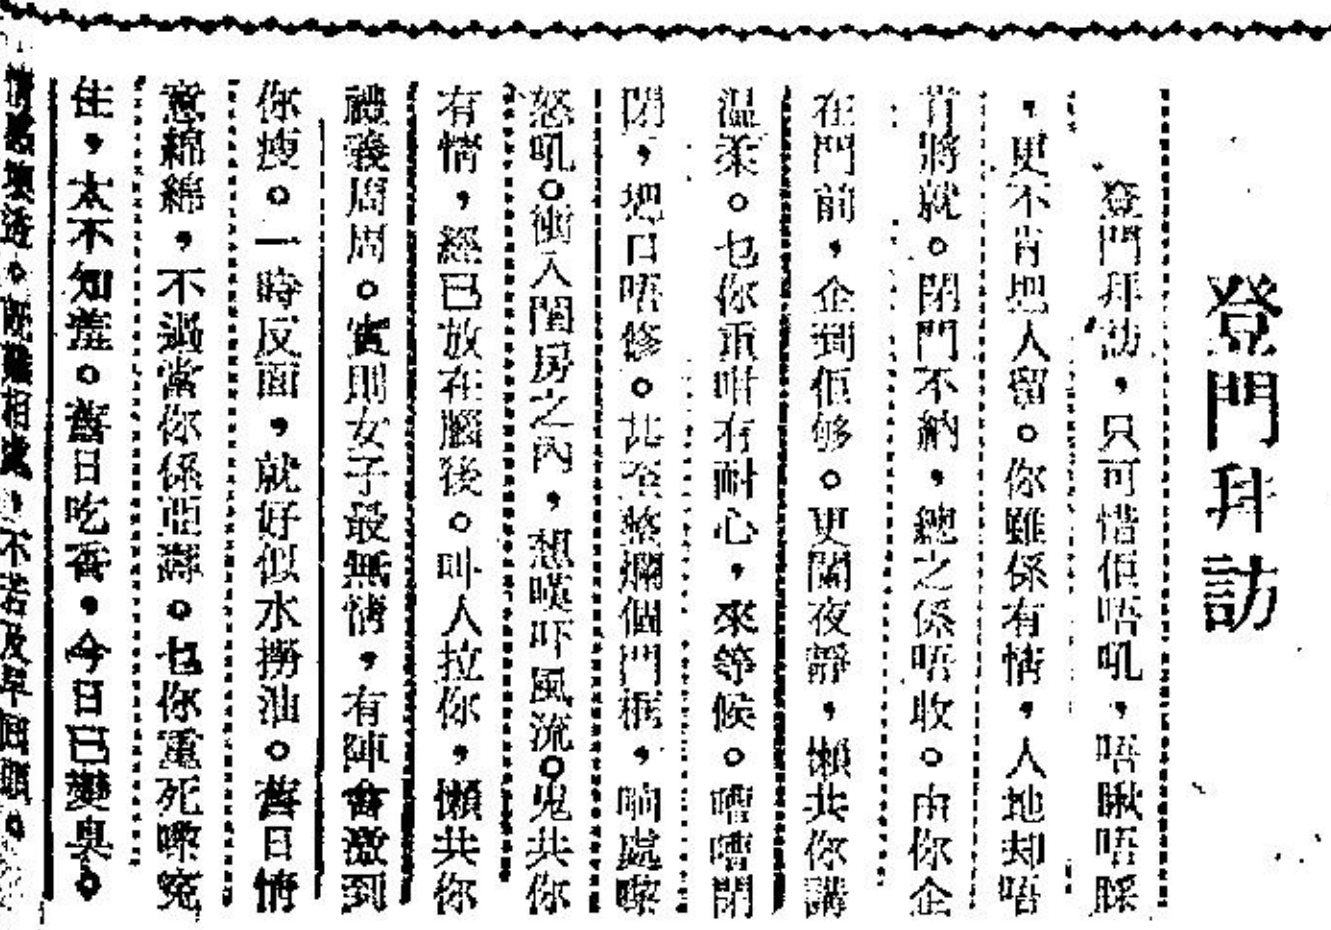 登門拜訪
登門拜訪，只可惜佢唔吼，唔瞅唔睬
，更不肯把人留。你雖係有情，人地却唔
肯將就。閉門不納，總之係唔收。由你企
在門前，企到佢够。更闌夜靜，懶共你講
温柔。乜你重咁冇耐心，來等候。嘈嘈閉
閉，把口唔修。整爛個門框，响處嚟
怒吼。衝入閨房之內，想嘆吓風流。鬼共你
有情，經已放在腦後。叫人拉你，懶共你
禮義周周。實則女子最無情，有陣會激到
你瘦。一時反面，就好似水撈油。舊日情
意綿綿，不過當你係亞壽。乜你重死嚟兖
住，太不知羞。舊日吃香，今日已變臭。
情慾項透。既難相處，不若及早回頭。